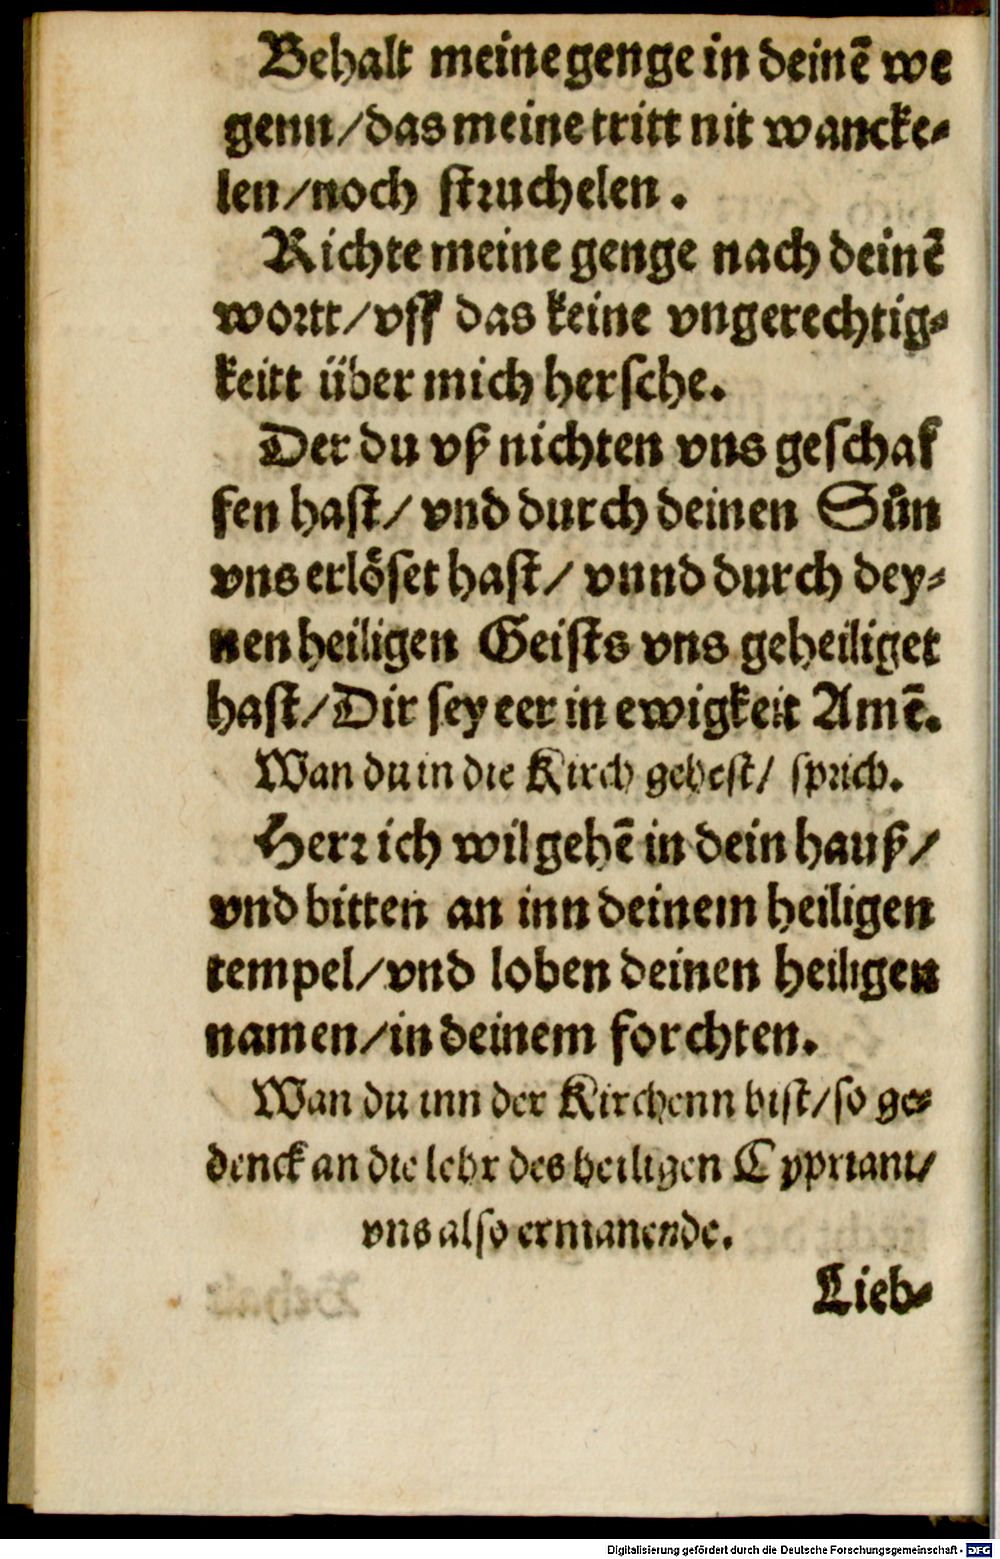 Behalt meine genge in deinē we
genn/das meine tritt nit wancke⸗
len/noch ſtꝛuchelen.
Richte meine genge nach deinē
woꝛtt/vff das keine vngerechtig⸗
keitt über mich herſche.
Der du vß nichten vns geſchaf
fen haſt/ vnd durch deinen Sůn
vns erlöſet haſt/ vnnd durch dey⸗
nen heiligen Geiſts vns geheiliget
haſt/Dir ſey eer in ewigkeit Amē.
Wan du in die Kirch geheſt/ ſpꝛich.
Herꝛ ich wil gehē in dein hauß/
vnd bitten an inn deinem heiligen
tempel/vnd loben deinen heiligen
namen/in deinem forchten.
Wan du inn der Kirchenn biſt/ſo ge⸗
denck an die lehr des heiligen Cypriani/
vns alſo ermanende.
Lieb⸗
Digitalisierung gefördert durch die Deutsche Forschungsgemeinschaft - DFG